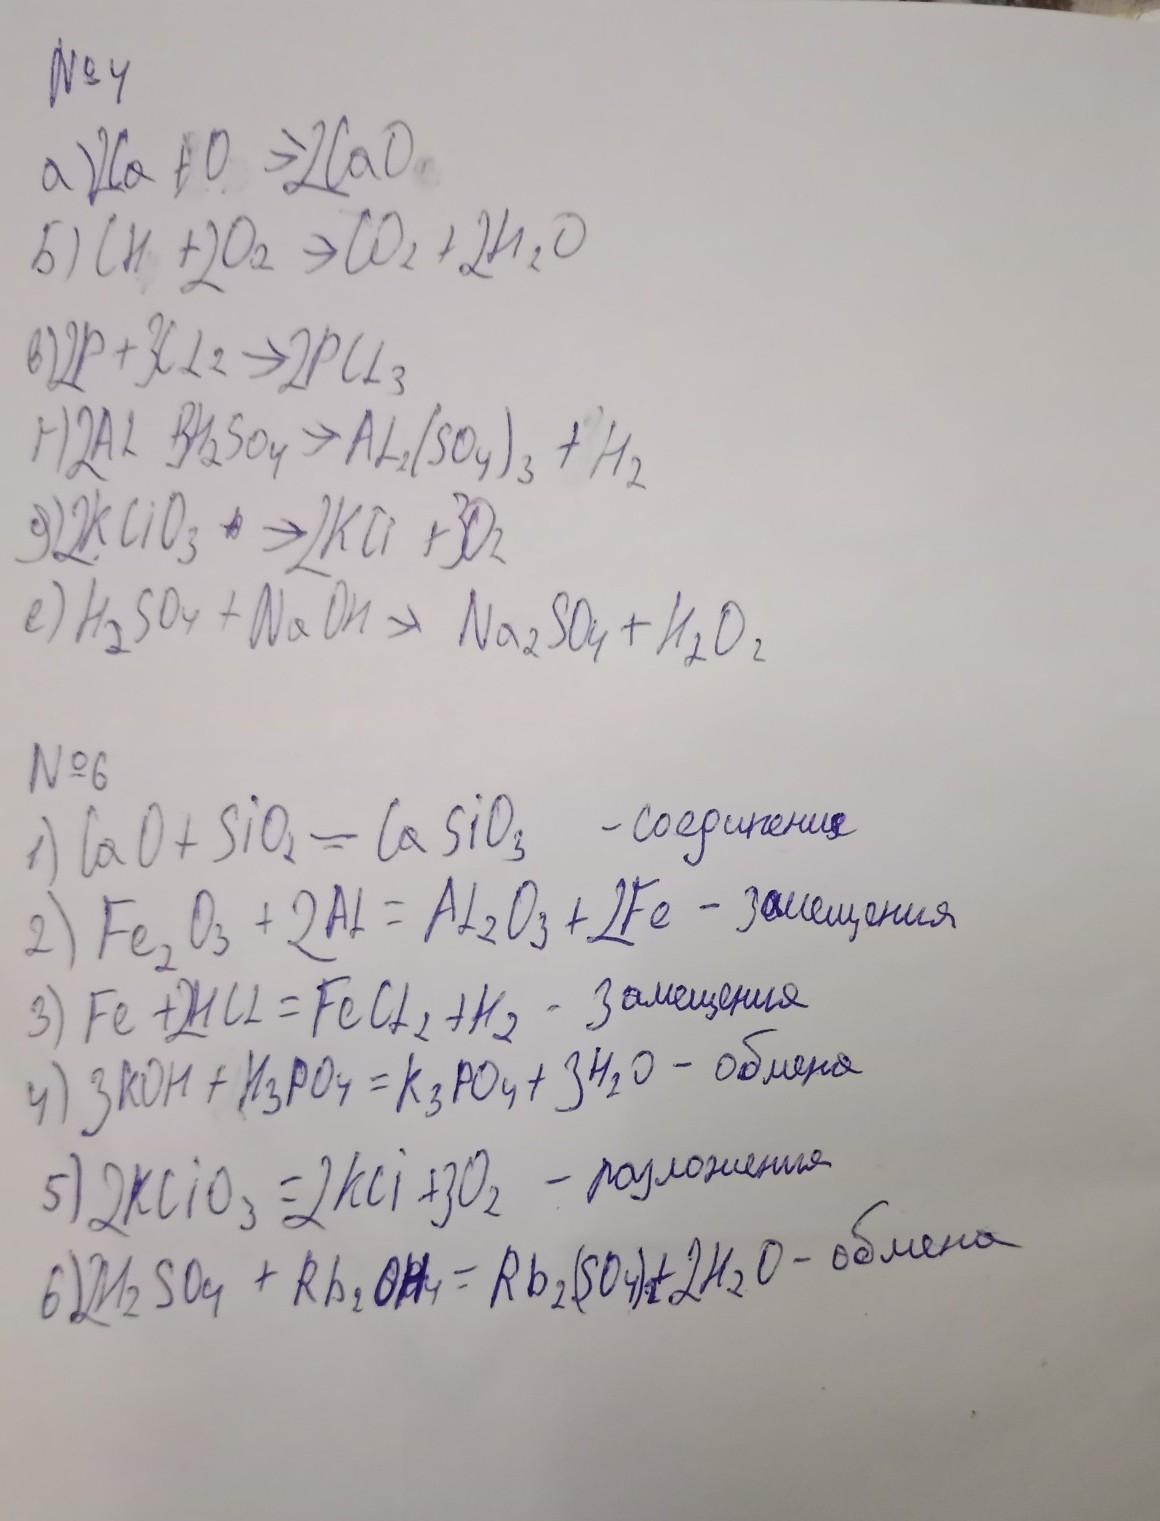 №4
а) 2Ca + O → 2CaO
Б) CH + 2O2 → CO2 + 2H2O
в) 2P + 3CL2 → 2PCL3
г) 2AL 3H2SO4 → AL2(SO4)3 + H2
д) 2KCiO3 → 2KCi + 3O2
е) H2SO4 + NaOH → Na2SO4 + H2O2
№6
1) CaO + SiO2 = CaSiO3 - соединение
2) Fe2O3 + 2AL = AL2O3 + 2Fe - замещения
3) Fe + 2HCL = FeCL2 + H2 - замещения
4) 3KOH + H3PO4 = K3PO4 + 3H2O - обмена
5) 2KCiO3 = 2KCi + 3O2 - разложения
6) 2H2SO4 + Rb2OH4 = Rb2(SO4)2 + 2H2O - обмена